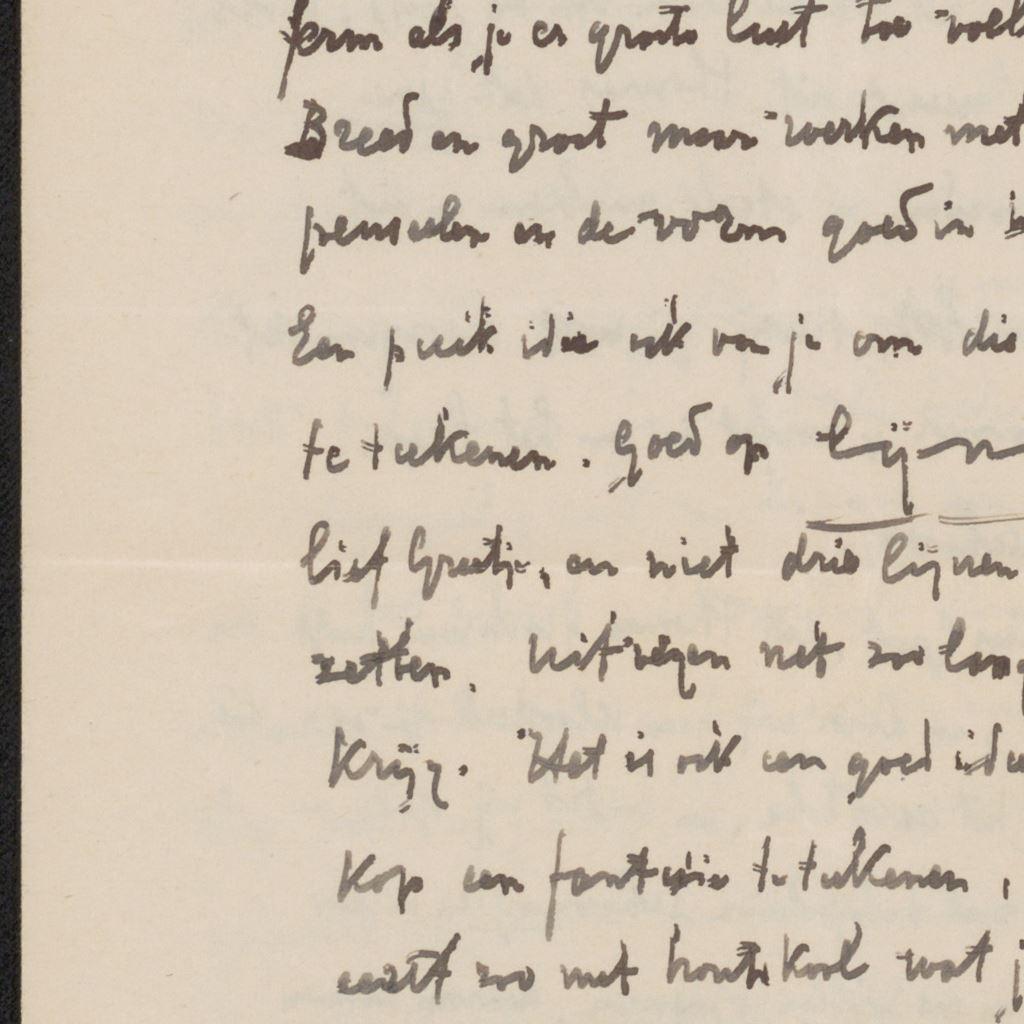 ferm als je er groote lust toe voelt
Breed en groot maar werken met
penseelen en de vorm goed in
Een puik idee ook van je om die
te teekenen. Goed op lijn
lief Greetje, en niet drie lijnen
zetten. Uitvegen net zoo lang
Krijg. Het is ook een goed idee
Kop een fantasie te teekenen,
eerst zoo met houtskool wat j